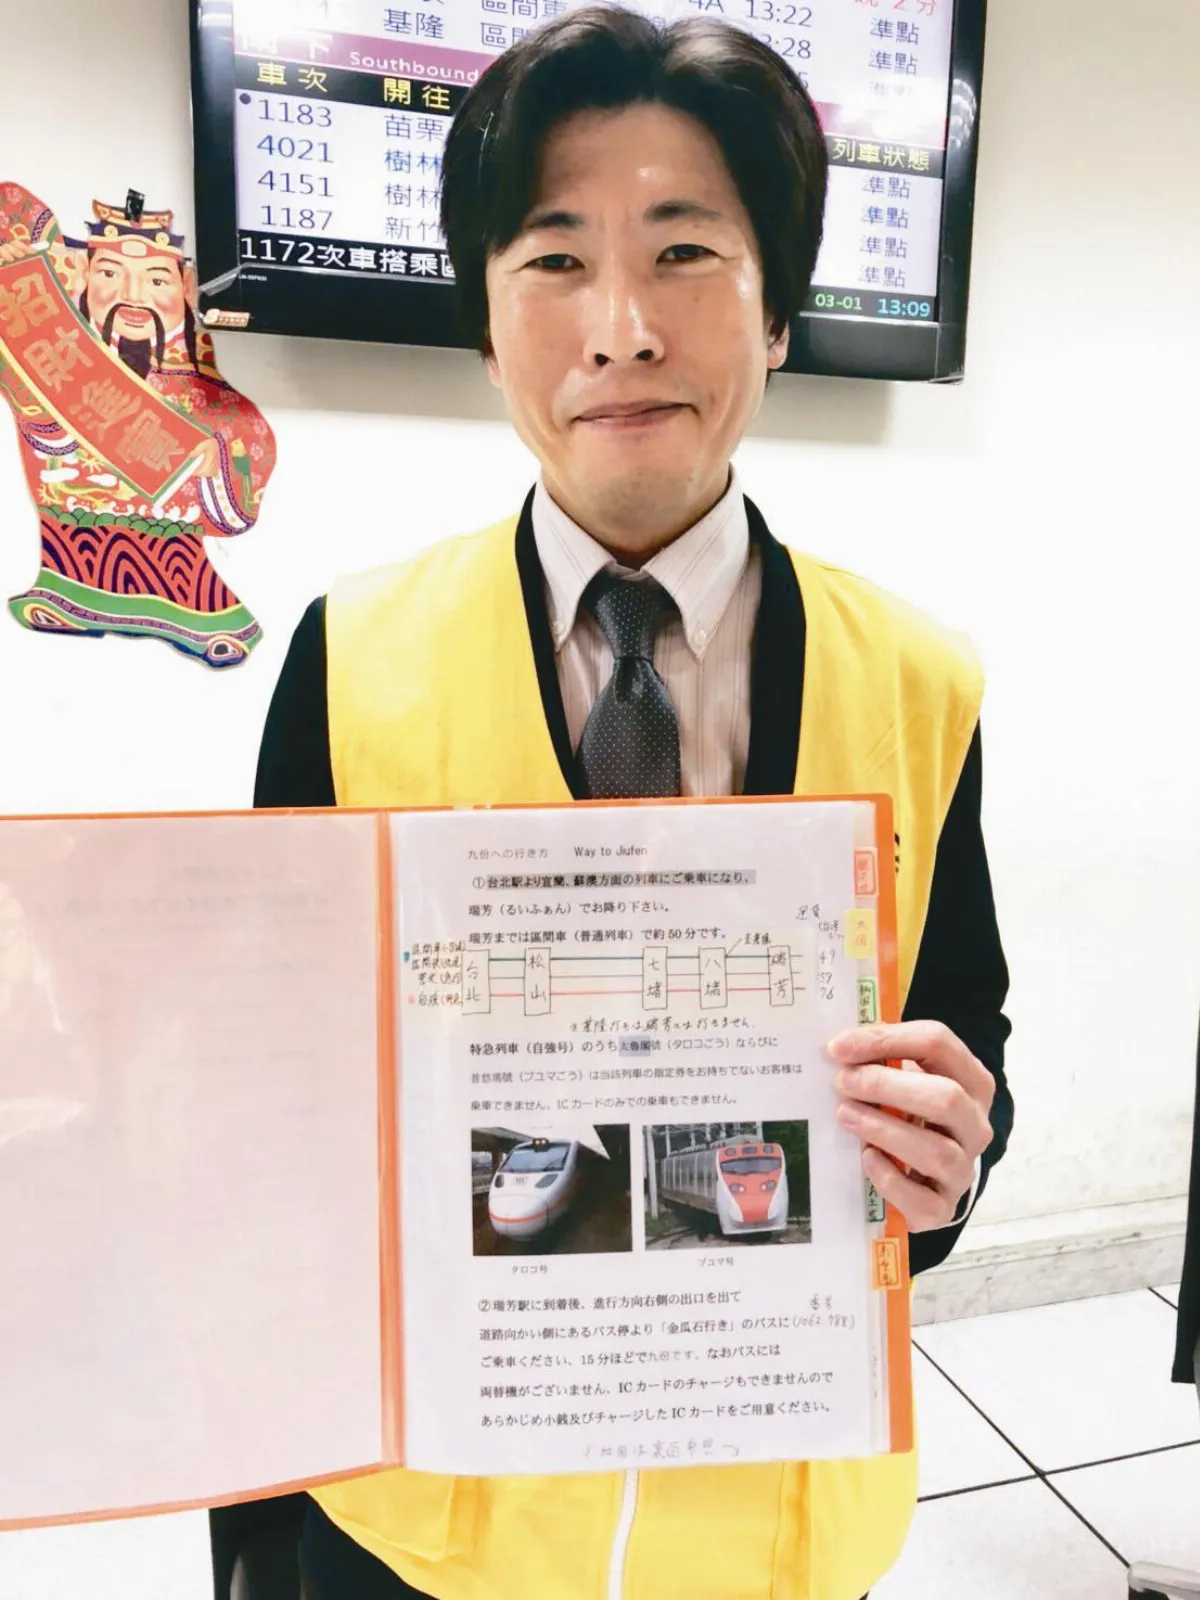 4A 13:22
基隆 區間
13:28 準點
準點
Southbound
車次 開往 列車狀態
1183 苗栗 準點
4021 樹林 準點
4151 樹林 準點
1187 新竹 準點
1172次車搭乘
03-01 13:09
招財進寶
九份への行き方 Way to Jiufen
①台北駅より宜蘭、蘇澳方面の列車にご乗車になり、
瑞芳（るいふぁん）でお降り下さい。
瑞芳までは區間車（普通列車）で約50分です。
台北 松山 七堵 八堵 瑞芳
49
59
76
特急列車（自強号）のうち太魯閣號（タロコごう）ならびに
普悠瑪號（プユマごう）は当該列車の指定券をお持ちでないお客様は
乗車できません、ICカードのみでの乗車もできません。
タロコ号 プユマ号
②瑞芳駅に到着後、進行方向右側の出口を出て
番号
道路向かい側にあるバス停より「金瓜石行き」のバスに(1062.788)
ご乗車ください、15分ほどで九份です。なおバスには
両替機がございません、ICカードのチャージもできませんので
あらかじめ小銭及びチャージしたICカードをご用意ください。
九份